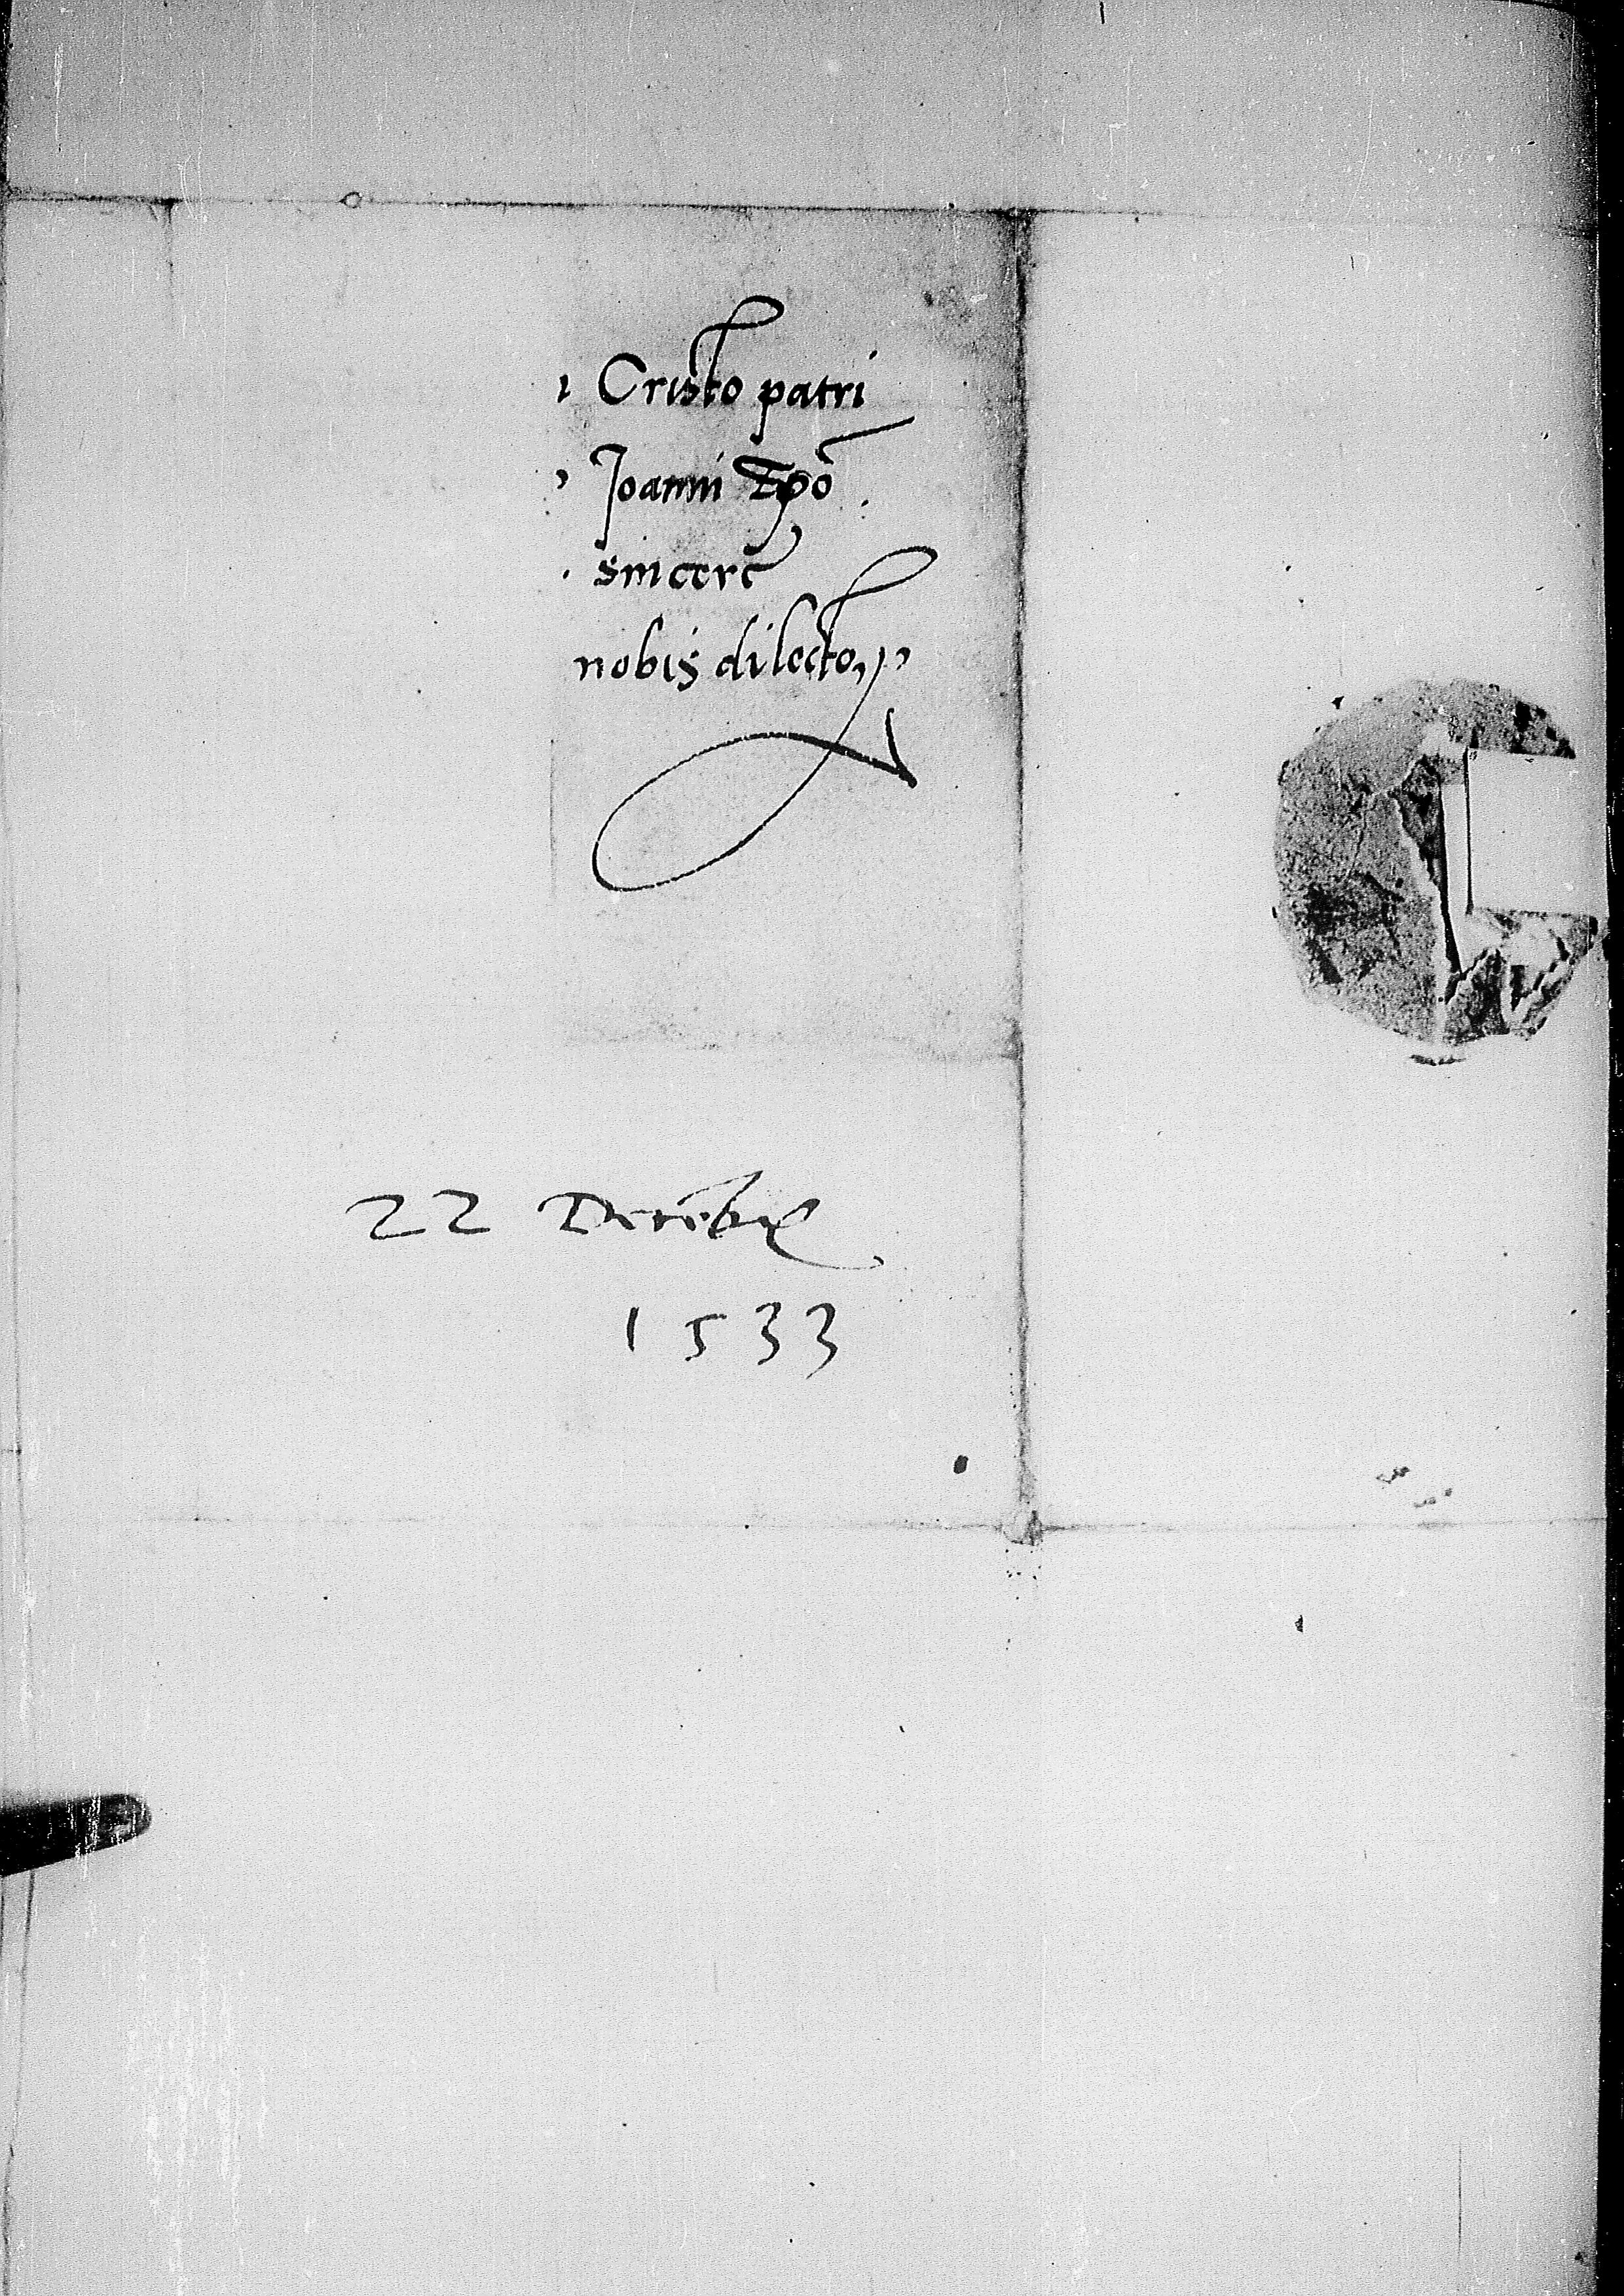 Cristo patri
Joanni Epō
sincere
nobis dilecto
22 Decēbr
1533